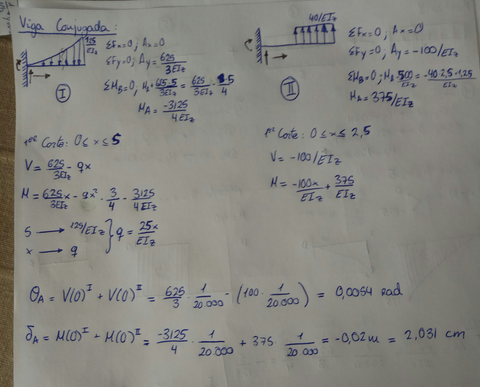 Viga Conjugada:
ΣFx=0; Ax=0
ΣFy=0; Ay=625/3EIz
ΣMB=0;
MA=-3125/4EIz
I
40/EIz
ΣFx=0; Ax=0
ΣFy=0; Ay=-100/EIz
MA=375/EIz
II
Corte: 0≤x≤5
V=625/3EIz-qx
M=625x/3EIz-qx²·3/4-3125/4EIz
5 → 125/EIz
x → q
} q=25x/EIz
1er Corte: 0≤x≤2,5
V=-100/EIz
M=-100x/EIz+375/EIz
θA=V(0)^I+V(0)^II=625/3·1/20.000-(100·1/20.000)=0,0054 rad
δA=M(0)^I+M(0)^II=-3125/4·1/20.000+375·1/20.000=-0,02m=2,031 cm